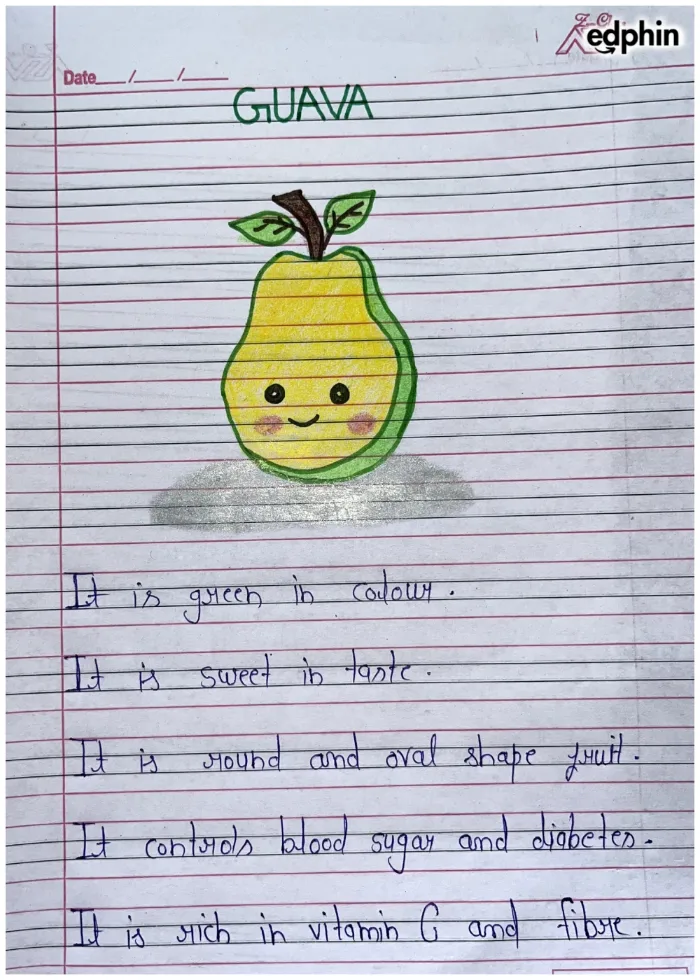 edphin
Date __/__/__
GUAVA
It is green in colour.
It is sweet in taste.
It is round and oval shape fruit.
It controls blood sugar and diabetes.
It is rich in vitamin C and fibre.